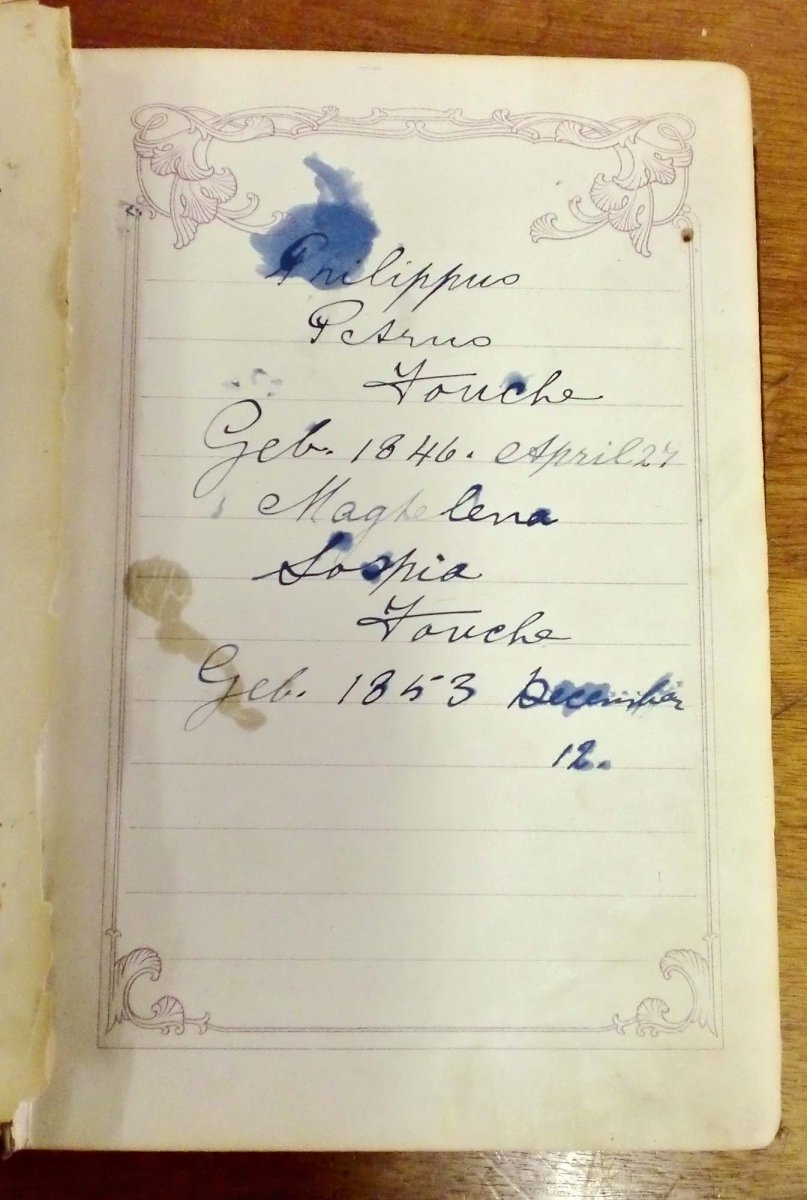 Philippus
Petrus
Fouche
Geb. 1846. April 27
Maghelena
Sospia
Fouche
Geb. 1853 December
12.